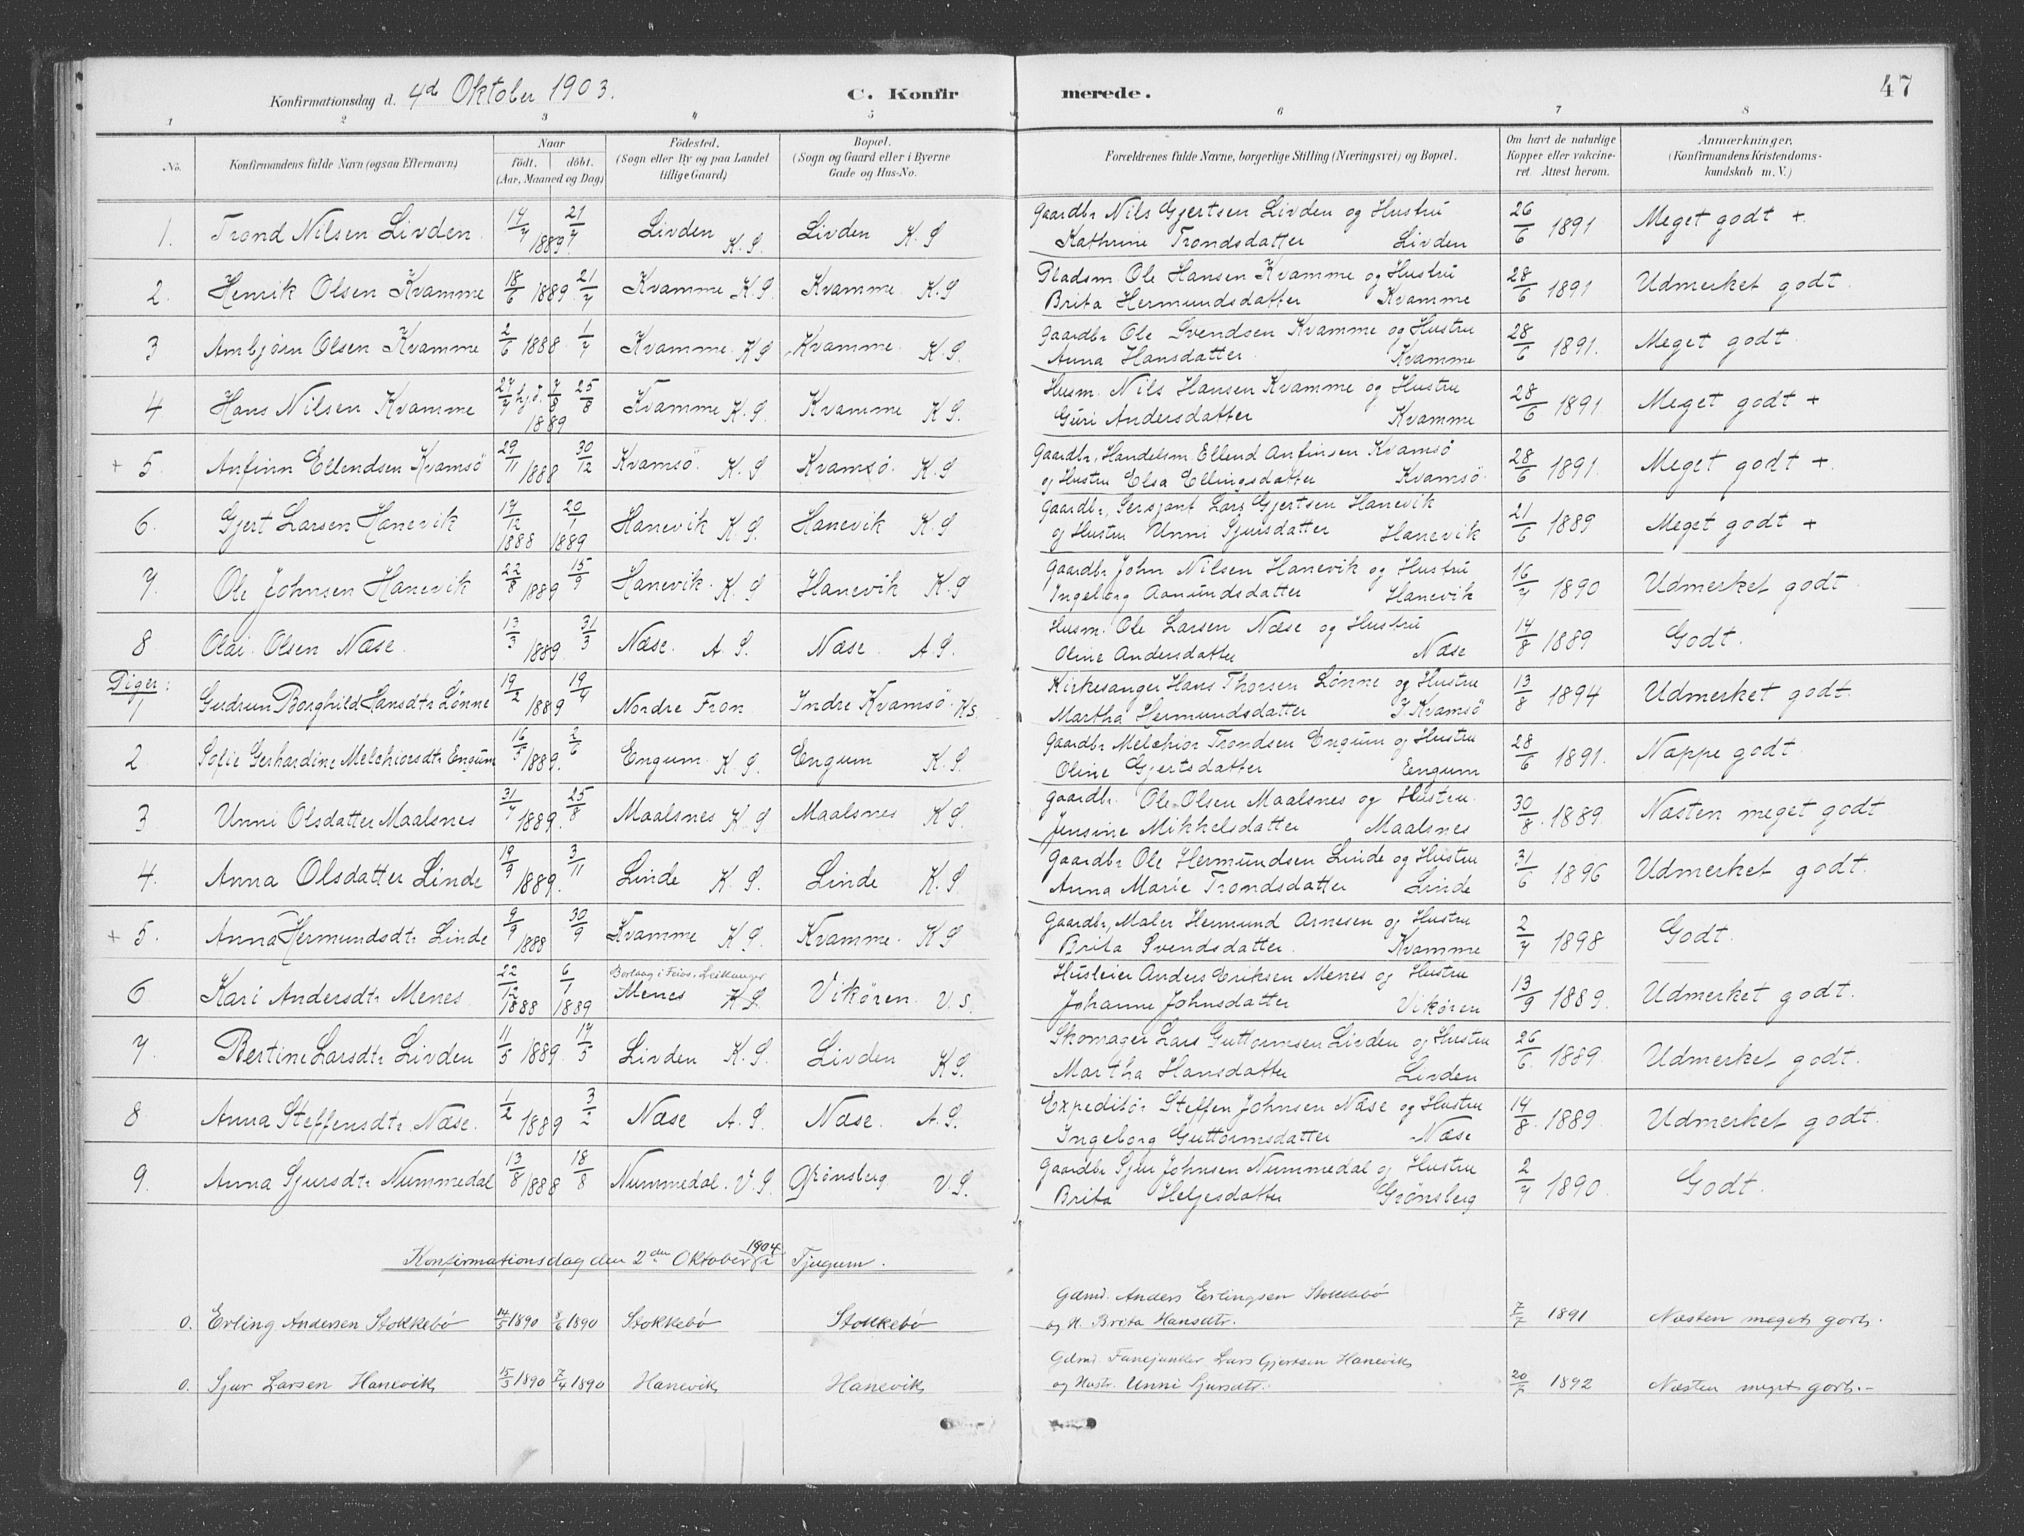 Konfirmationsdag d. 4d Oktober 1903. C. Konfirmerede. 47
1 2 3 4 5 6 7 8
No. Konfirmandens fulde Navn (ogsaa Efternavn) Naar födt. döbt. (Aar, Maaned og Dag) Födested. (Sogn eller By og paa Landet tillige Gaard) Bopæl. (Sogn og Gaard eller i Byerne Gade og Hus-No. Forældrenes fulde Navne, borgerlige Stilling (Næringsvei) og Bopæl. Om havt de naturlige Kopper eller vakcineret. Attest herom. Anmærkninger. (Konfirmandens Kristendomskundskab m. V.)
1. Trond Nilsen Livden 17/7 1889 21/7 Livden K. S Livden K. S Gaardbr Nils Gjertsen Livden og Hustru 26/6 1891 Meget godt +
Kathrine Trondsdatter Livden
2. Henrik Olsen Kvamme 18/6 1889 21/7 Kvamme K. S. Kvamme. K. S Pladsm. Ole Hansen Kvamme og Hustru 28/6 1891 Udmerket godt
Brita Hermundsdatter Kvamme
3 Ambjörn Olsen Kvamme 2/6 1888 1/7 Kvamme. K. S Kvamme. K. S. Gaardbr Ole Svendsen Kvamme og Hustru 28/6 1891. Meget godt
Anna Hansdatter. Kvamme
4 Hans Nilsen Kvamme 27/7 hjd. 7/8 1889 25/8 Kvamme K. S. Kvamme K. S. Husm. Nils Hansen Kvamme og Hustru 28/6 1891 Meget godt +
Guri Andersdatter Kvamme
+ 5. Anfinn Ellendsen Kvamsö 29/11 1888 30/12 Kvamsö. K. S Kvamsö. K. S Gaardbr, Handelsm Ellend Anfinsen Kvamsö 28/6 1891. Meget godt +.
og Hustru Elsa Ellingsdatter Kvamsö.
6. Gjert Larsen Hanevik 17/12 1888 20/1 1889 Hanevik K. S. Hanevik K. S Gaardbr, Sersjant Lars Gjertsen Hanevik 21/6 1889 Meget godt +
og Hustru Unni Sjursdatter Hanevik
7. Ole Johnsen Hanevik 22/8 1889 15/9 Hanevik. K. S Hanevik K. S Gaardbr John Nilsen Hanevik og Hustru 16/7 1890 Udmerket godt
Ingeborg Aamundsdatter Hanevik
8 Olai Olsen Næse. 13/3 1889 31/3 Næse. A. S. Næse. A. S. Husm. Ole Larsen Næse og Hustru 14/8 1889 Godt.
Oline Andersdatter Næse
Piger:
1 Gudrun Borghild Hansdtr Lönne 19/2 1889 19/4 Nordre Fron Indre Kvamsö. K. S. Kirkesanger Hans Thorsen Lönne og Hustru 13/8 1894 Udmerket godt.
Martha Hermundsdatter I Kvamsö
2. Sofie Gerhardine Melchiorsdtr Engum 16/5 1889. 2/6 Engum. K. S Engum K. S. Gaardbr Melchior Trondsen Engum og Hustru 28/6 1891. Nappe godt.
Oline Gjertsdatter Engum
3 Unni Olsdatter Maalsnes 31/7 1889. 25/8 Maalsnes K. S Maalsnes K. S. Gaardbr. Ole Olsen Maalsnes og Hustru. 30/8. 1889. Næsten meget godt
Jensine Mikkelsdatter Maalsnes
4. Anna Olsdatter Linde 19/9 1889. 3/11 Linde K. S. Linde K. S. Gaardbr Ole Hermundsen Linde og Hustru 31/6 1896 Udmerket godt.
Anna Marie Trondsdatter Linde
+ 5. Anna Hermundsdtr Linde 9/9 1888 30/9 Kvamme K. S. Kvamme. K. S Gaardbr, Maler Hermund Arnesen og Hustru 2/7 1898 Godt.
Brita Svendsdatter. Kvamme
6 Kari Andersdtr Menes 22/12 1888 6/1 1889 Borlaug i Feios. Leikanger Menes K. S. Vikören. V. S. Husleier Anders Eriksen Menes og Hustru 13/9 1889. Udmerket godt.
Johanne Johnsdatter Vikören
7 Bertine Larsdtr Livden 11/5 1889. 17/5 Livden K. S. Livden K. S. Skomager Lars Guttormsen Livden og Hustru 26/6. 1889. Udmerket godt.
Martha Hansdatter Livden
8 Anna Steffensdtr Næse. 1/2 1889 3/2 Næse A. S. Næse. A. S. Expeditör Steffen Johnsen Næse og Hustru 14/8. 1889. Udmerket godt.
Ingeborg Guttormsdatter Næse
9. Anna Sjursdtr Nummedal 13/8 1888 18/8 Nummedal. V. S. Grönsberg V. S. Gaardbr Sjur Johnsen Nummedal og Hustru 2/7 1890. Godt.
Brita Heljesdatter Grönsberg
Konfirmationsdag den 2den Oktober 1904 i Tjugum.
0. Erling Andersen Stokkebö 14/5 1890 8/6 1890 Stokkebö Stokkebö Gdmd. Anders Erlingsen Stokkebö 7/7 1891 Næsten meget godt.
og H. Brita Hansdtr.
0. Sjur Larsen Hanevik 15/3 1890 7/4 1890 Hanevik Hanevik Gdmd. Fanejunker Lars Gjertsen Hanevik 20/7 1892 Næsten meget godt.-
og Hustr. Unni Sjursdtr.